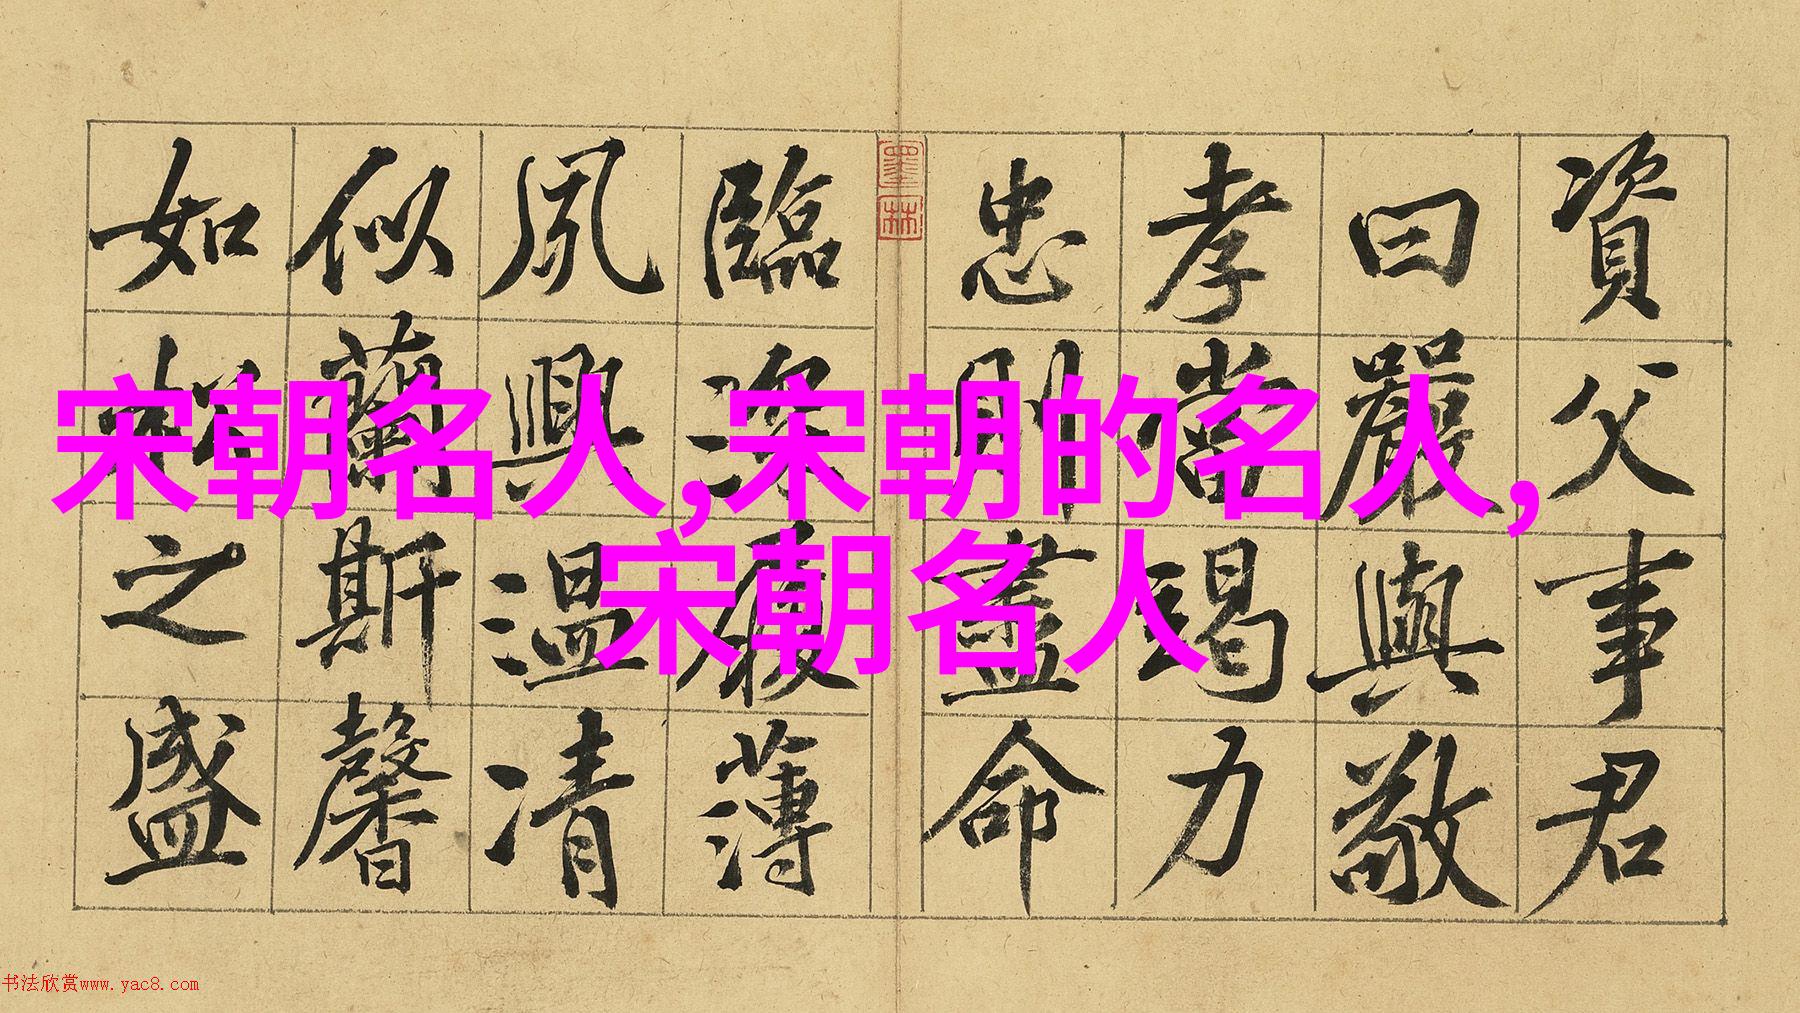 資父事君
曰嚴與敬
孝當竭力
忠則盡命
臨深履薄
夙興温凊
似蘭斯馨
如松之盛
墨林
宋朝名人,宋朝的名人,
宋朝名人
书法欣赏www.yac8.com